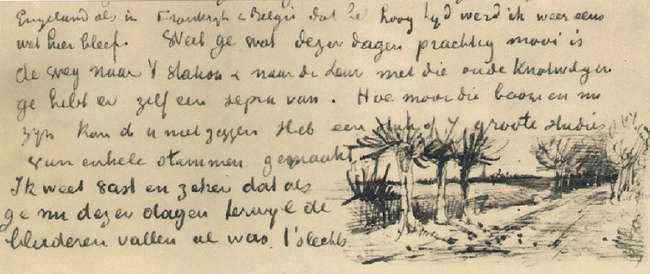 Engeland als in Frankrijk & Belgie dat 't hoog tijd werd ik weer eens
wat hier bleef. Weet ge wat dezer dagen prachtig mooi is
de weg naar 't station & naar de Leur met die oude knotwilgen
ge hebt er zelf een sepia van. Hoe mooi die boomen nu
zijn kan ik u niet zeggen Heb een stuk of 7 groote studies
van enkele stammen gemaakt
Ik weet vast en zeker dat als
ge nu dezer dagen terwijl de
bladeren vallen al was 't slechts